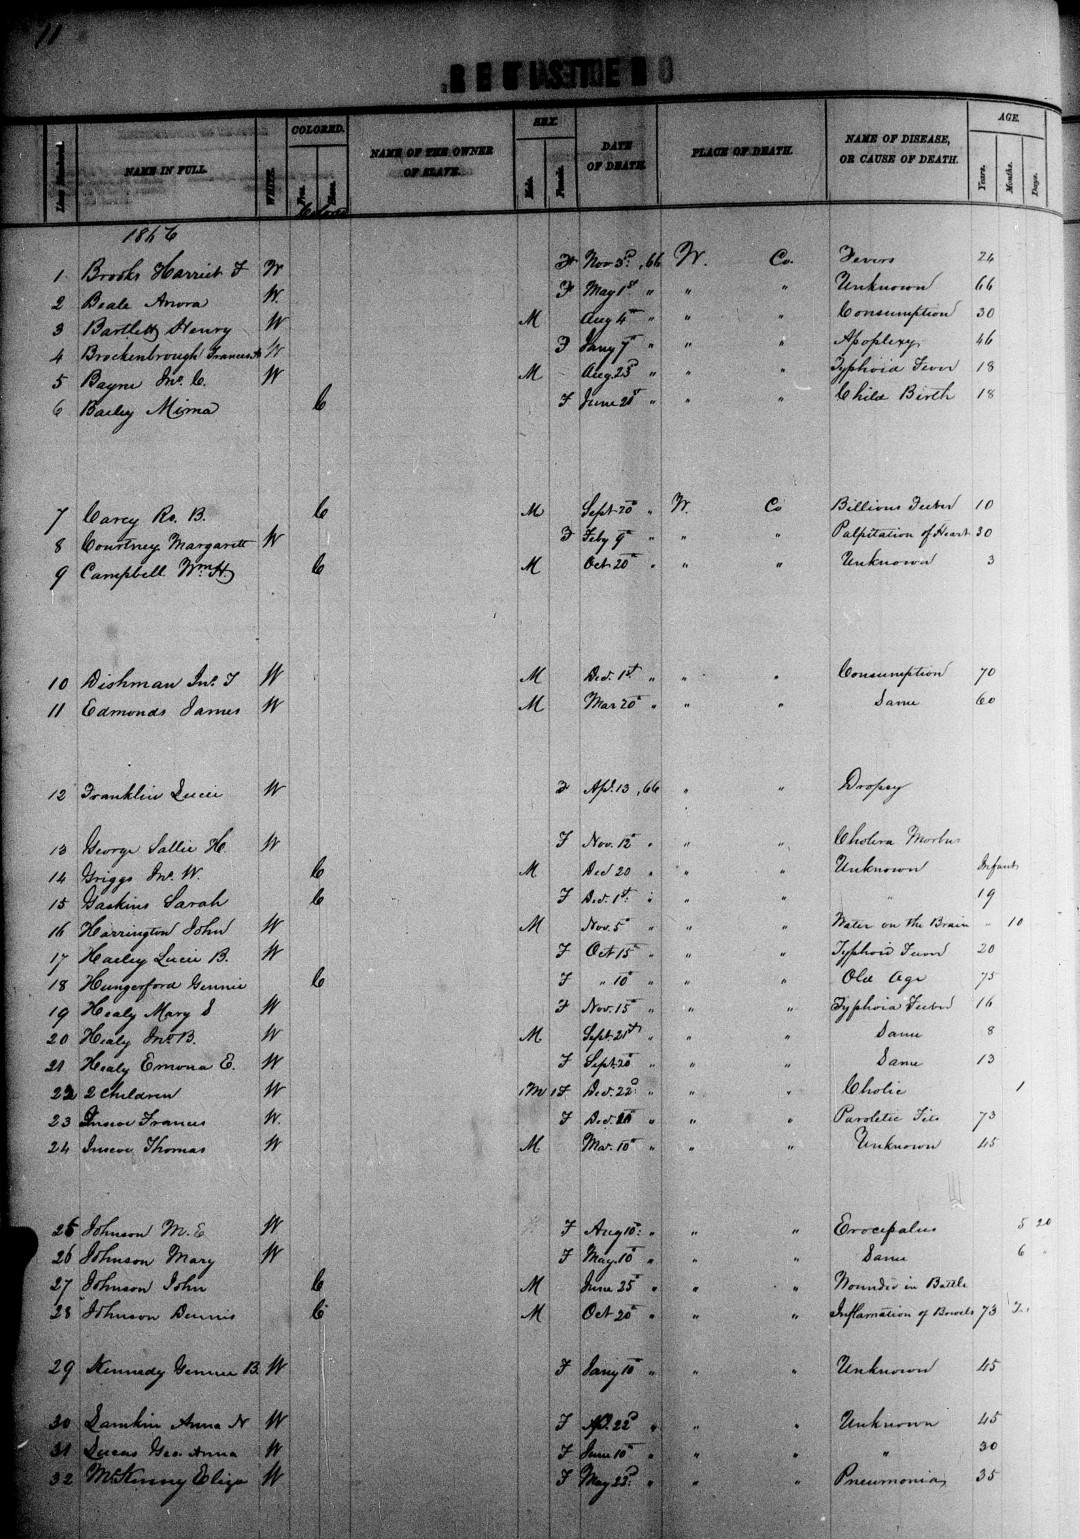 11
REGISTER O
Lines Numbered. NAME IN FULL. WHITE. COLORED. Free. Slave. NAME OF THE OWNER OF SLAVE. SEX. Male. Female. DATE OF DEATH. PLACE OF DEATH. NAME OF DISEASE, OR CAUSE OF DEATH. AGE. Years. Months. Days.
Colored
1866
1 Brooks Harriet F W F Nov 3d ,66 W. Co. Fevers 24
2 Beale Anora W. F May 1st " " " Unknown 66
3 Bartlett Henry W M Aug 4th " " " Consumption 30
4 Brockenbrough Frances A W F Jany 7th " " " Apoplexy 46
5 Bayne Jno. C. W M Aug 23d " " " Typhoid Fever 18
6 Bailey Mima C F June 21st " " " Child Birth 18
7 Carey Ro. B. C M Sept 20th " W. Co Billious Feever 10
8 Courtney Margarett W F Feby 9th " " " Palpitation of Heart 30
9 Campbell Wm H. C M Oct 20th " " " Unknown 3
10 Dishman Jno. T W M Dec. 1st " " " Consumption 70
11 Edmonds James W M Mar 20th " " " Same 60
12 Franklin Lucie W F Apl. 13 ,66 " " Dropsy
13 George Sallie H. W F Nov. 12th " " " Cholera Morbus
14 Griggs Jno. W. C M Dec 20 " " " Unknown Infant
15 Gaskins Sarah C F Dec. 1st " " " " 19
16 Harrington John W M Nov. 5th " " " Water on the Brain " 10
17 Hailey Lucie B. W F Oct 15th " " " Typhoid Fever 20
18 Hungerford Gennie C F " 10th " " " Old Age 75
19 Healy Mary S W F Nov. 15th " " " Typhoid Feever 16
20 Healy Jno. B. W M Sept 21st " " " Same 8
21 Healy Emona E. W F Sept 20th " " " Same 13
22 2 Children W 1M 1F Dec. 22d " " " Cholic 1
23 Inscoe Frances W. F Dec. " " " Paroletic Fits 73
24 Inscoe Thomas W M Mar. 10th " " " Unknown 45
25 Johnson M. E W F Aug 10th " " " Erocipalus 5 20
26 Johnson Mary W F May 10th " " " Same 6 "
27 Johnson John C M June 25th " " " Wounded in Battle
28 Johnson Dennis C M Oct 20th " " " Inflamation of Bowels 73
29 Kennedy Gennie B. W F Jany 10th " " " Unknown 45
30 Lamkin Anna N W F Apl. 22d " " " Unknown 45
31 Lucas Geo. Anna W F June 10th " " " " 30
32 McKenny Eliza W F May 23d " " " Pneumonia 35